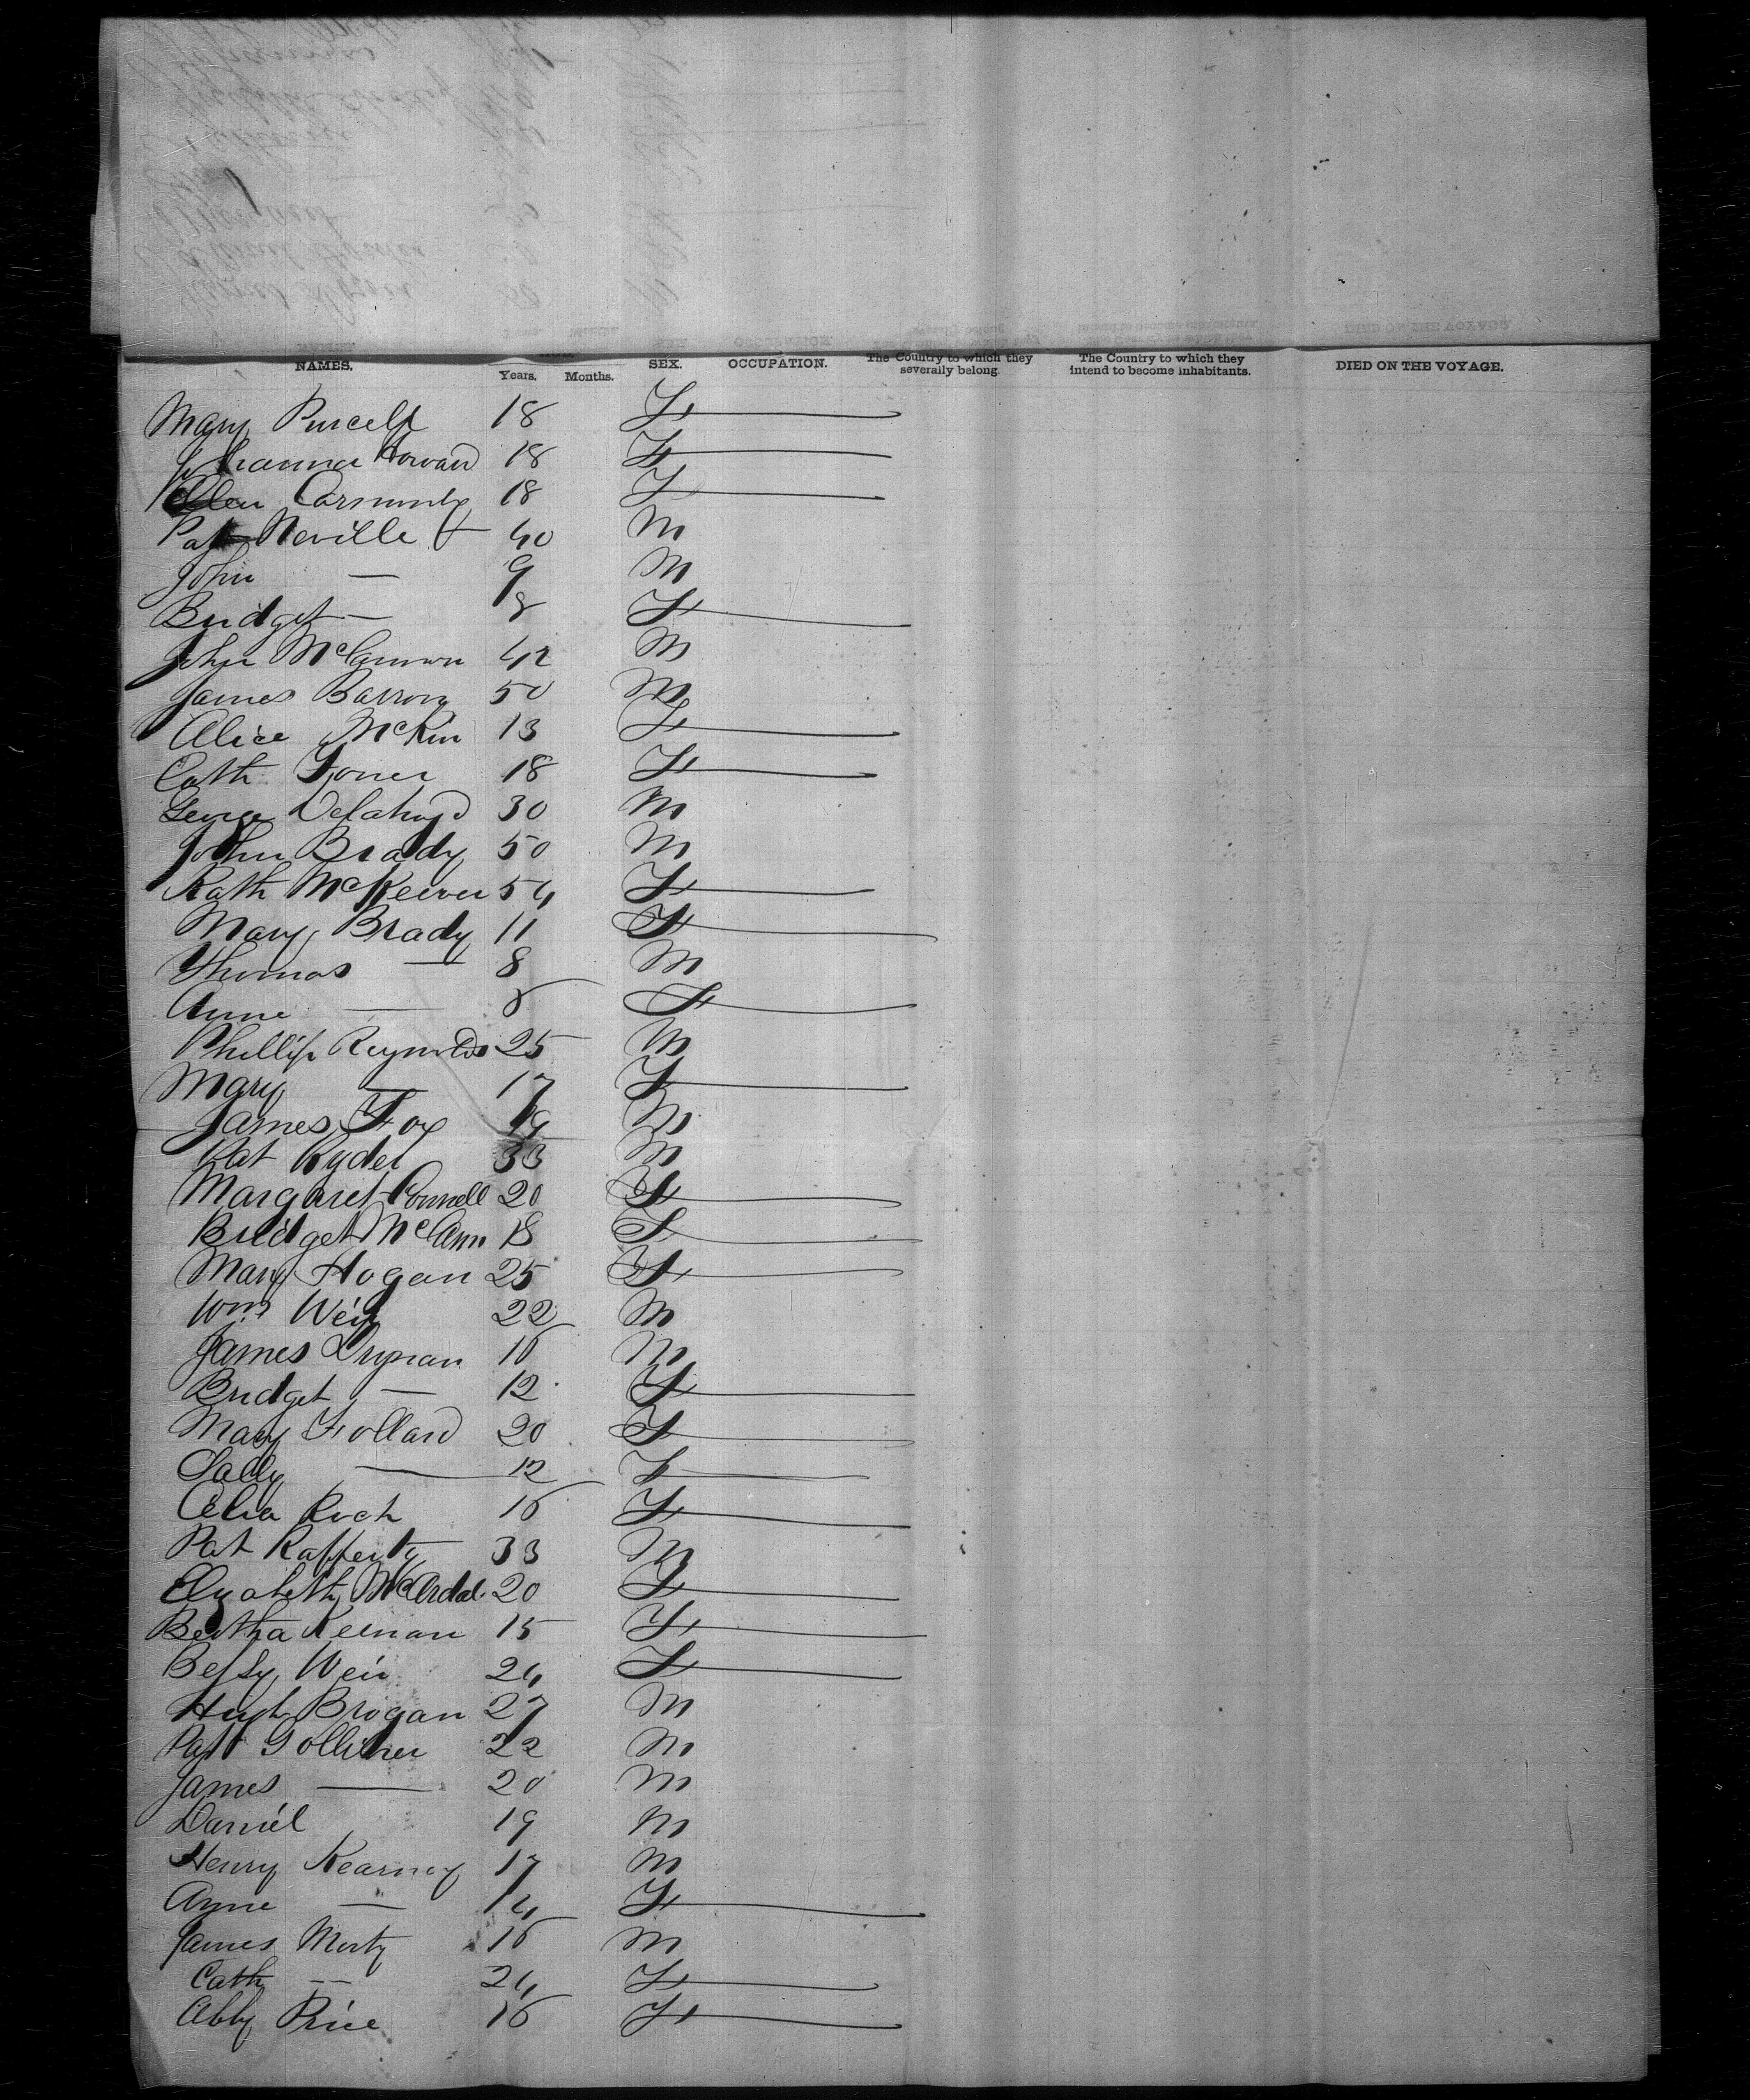 NAMES. Years. Months. SEX. OCCUPATION. The Country to which they severally belong. The Country to which they intend to become inhabitants. DIED ON THE VOYAGE.
Mary Purcell 18 F
Johanna Howard 18 F
Ellen 18 F
Pat Neville 40 M
John — 9 M
Bridget — 8 F
John McCannon 42 M
James Barron 50 M
Alice McKin 13 F
Cath Toner 18 F
George Delahoyd 30 M
John Brady 50 M
Kath McKeever 54 F
Mary Brady 11 F
Thomas — 8 M
Anne — F
Phillip Reynolds 25 M
Mary — 17 F
James Fox 19 M
Pat Ryder 33 M
Margaret Connell 20 F
Bridget McCann 18 F
Mary Hogan 25 F
Wm Weir 22 M
James Dugnan 16 M
Bridget — 12 F
Mary Follard 20 F
Sally — 12 F
Celia Roch 16 F
Pat Rafferty 33 M
Elizabeth McArdal 20 F
Bertha Keenan 15 F
Betsy Weir 24 F
Hugh Brogan 27 M
Patt Golliher 22 M
James — 20 M
Daniel 19 M
Henry Kearney 17 M
Anne — 14 F
James Morty 16 M
Cath — 24 F
Abby Price 16 F